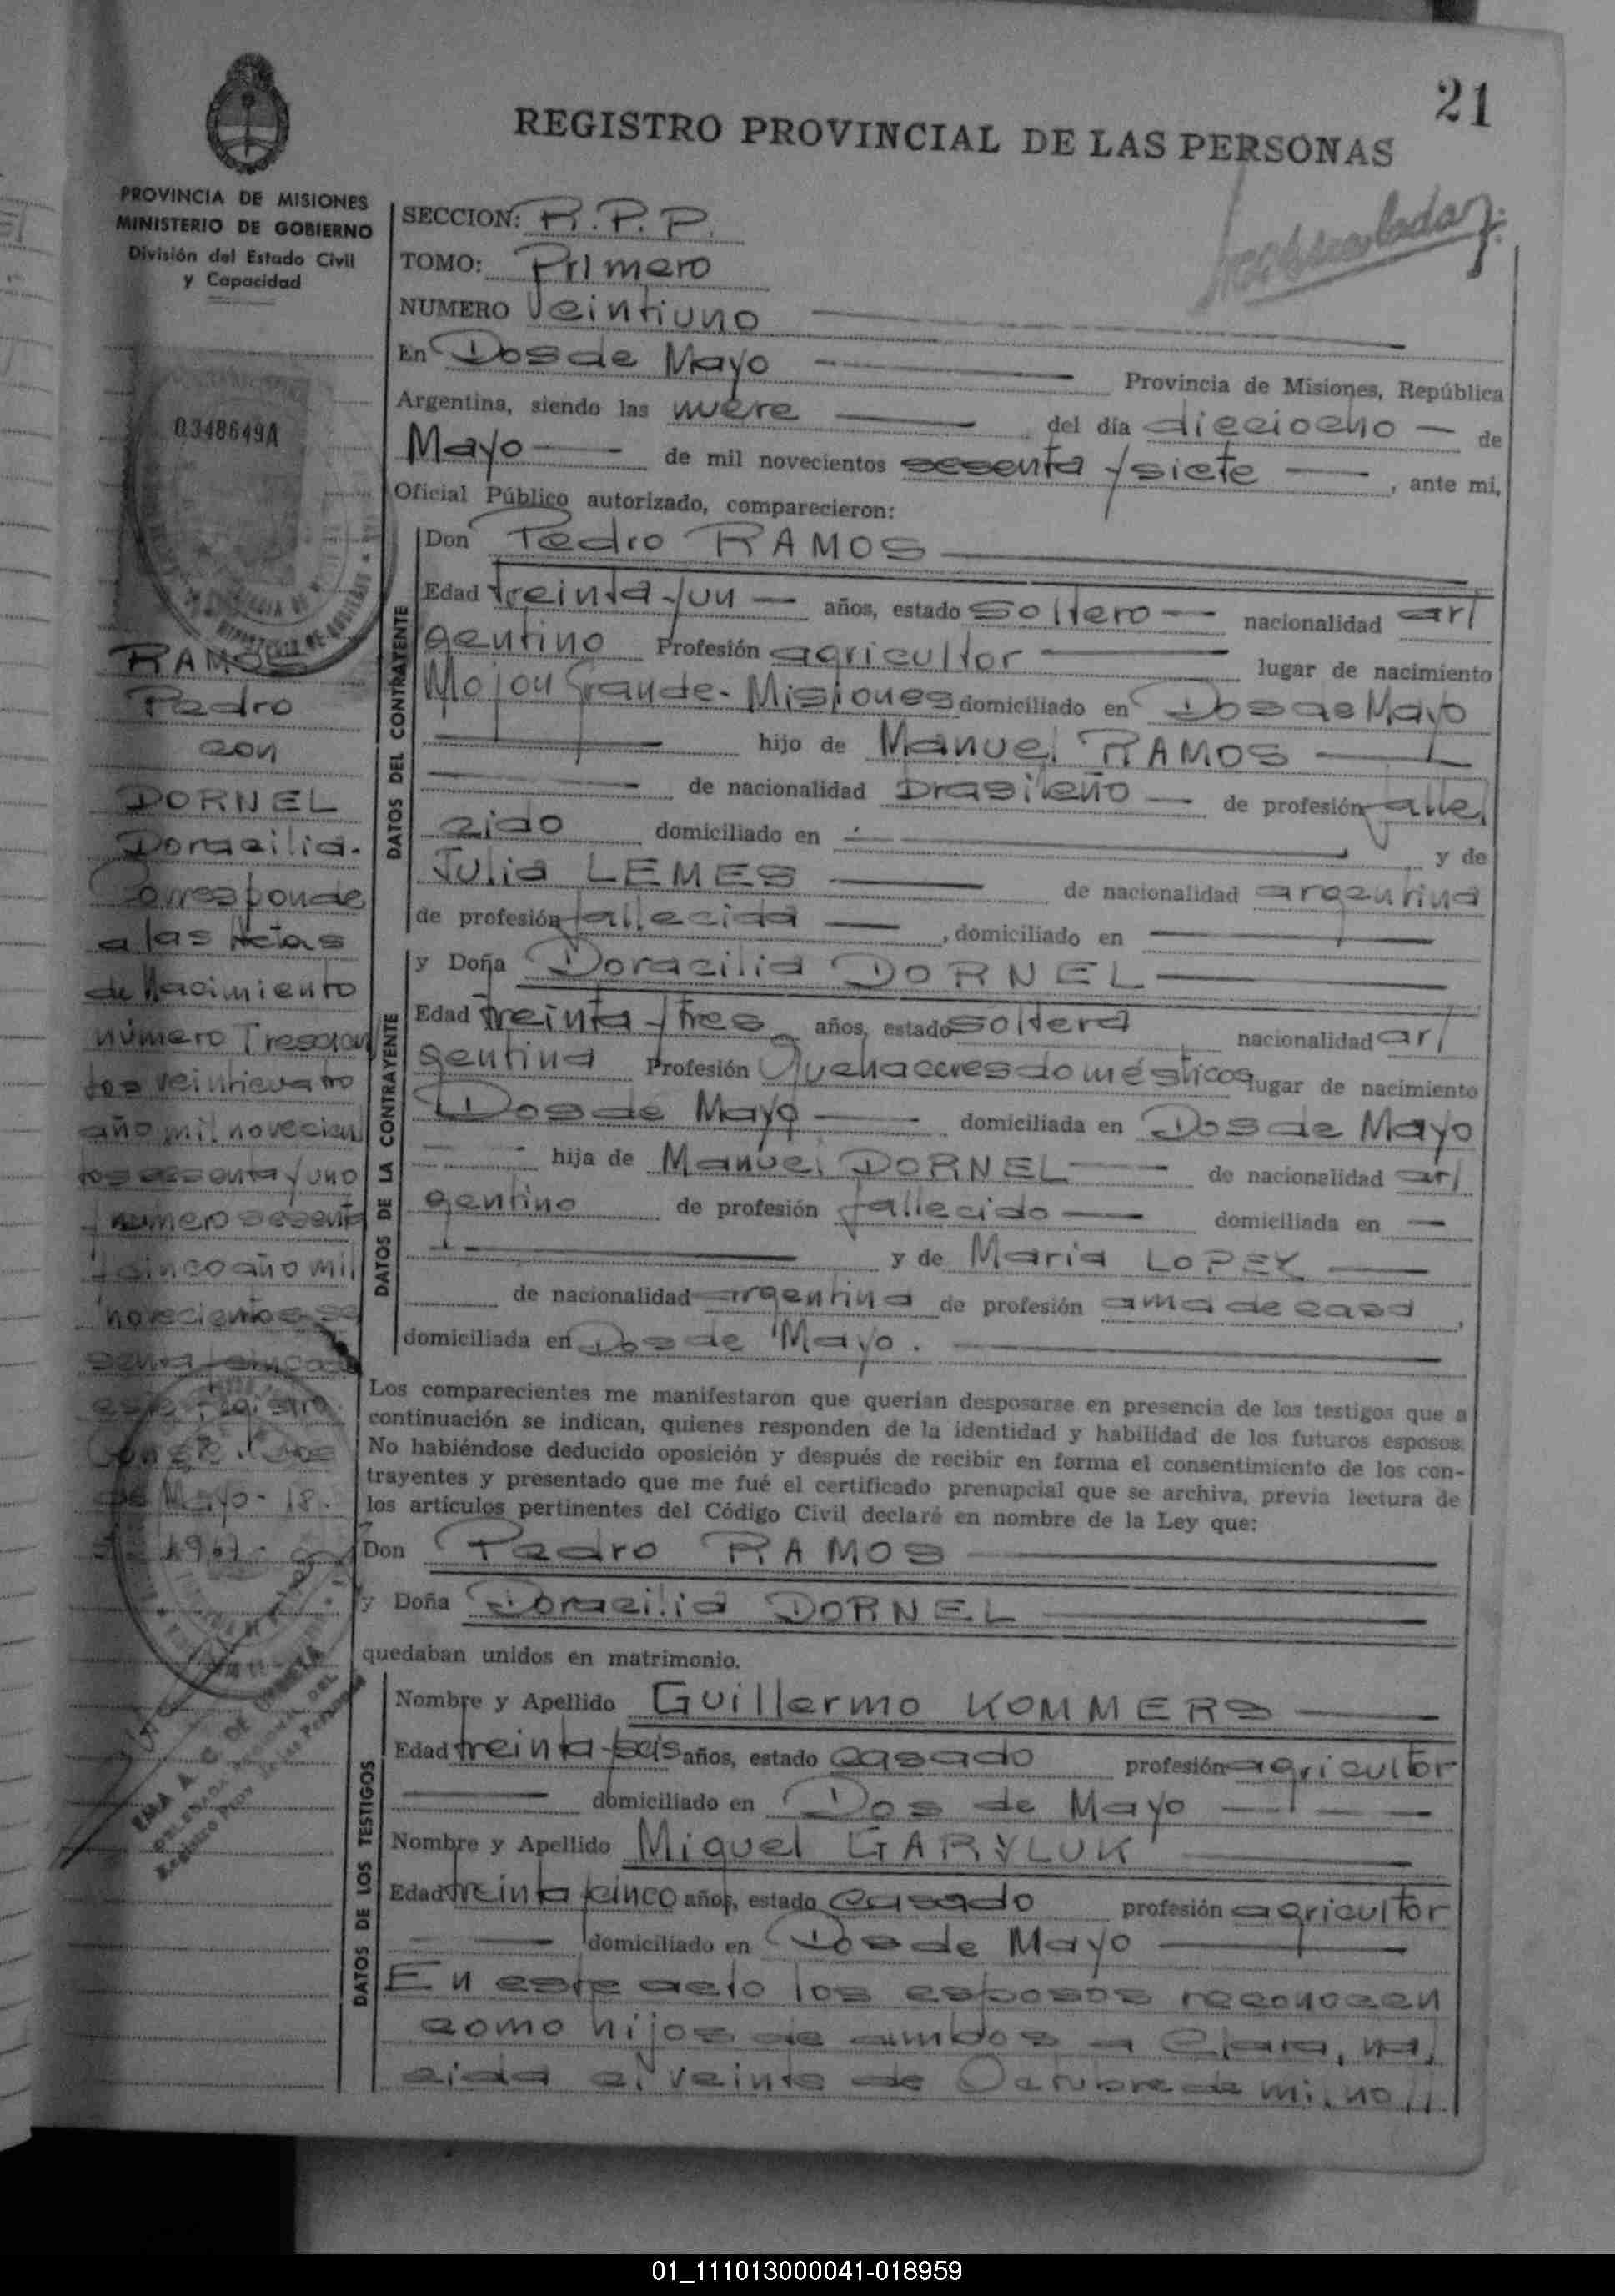 21
REGISTRO PROVINCIAL DE LAS PERSONAS
PROVINCIA DE MISIONES
MINISTERIO DE GOBIERNO
División del Estado Civil
y Capacidad
0348649A
RAMOS
Pedro
con
DORNEL
Doracilia.
Corresponde
a las Actas
de Nacimiento
número Trescien
tos veinticuatro
año mil novecien
tos sesenta y uno
y número sesenta
y cinco año mil
novecientos se
senta y cinco de
este registro.
Conste. Dos
de Mayo - 18.
1967.-
EMA A. C. DE
DELEGADA
Registro Prov de las Personas
SECCION: R.P.P.
TOMO: Primero
NUMERO Veintiuno
En Dos de Mayo Provincia de Misiones, República
Argentina, siendo las nueve del día dieciocho de
Mayo de mil novecientos sesenta y siete, ante mi,
Oficial Público autorizado, comparecieron:
DATOS DEL CONTRAYENTE
Don Pedro RAMOS
Edad treinta y un años, estado soltero nacionalidad ar/
gentino Profesión agricultor lugar de nacimiento
Mojon Grande - Misiones domiciliado en Dos de Mayo
hijo de Manuel RAMOS
de nacionalidad brasileño de profesión falle/
cido domiciliado en y de
Julia LEMES de nacionalidad argentina
de profesión fallecida, domiciliado en
DATOS DE LA CONTRAYENTE
y Doña Doracilia DORNEL
Edad treinta y tres años, estado soltera nacionalidad ar/
gentina Profesión Quehaceres domésticos lugar de nacimiento
Dos de Mayo domiciliada en Dos de Mayo
hija de Manuel DORNEL de nacionalidad ar/
gentino de profesión fallecido domiciliada en
y de Maria LOPEZ
de nacionalidad argentina de profesión ama de casa,
domiciliada en Dos de Mayo.
Los comparecientes me manifestaron que querían desposarse en presencia de los testigos que a
continuación se indican, quienes responden de la identidad y habilidad de los futuros esposos.
No habiéndose deducido oposición y después de recibir en forma el consentimiento de los con-
trayentes y presentado que me fué el certificado prenupcial que se archiva, previa lectura de
los artículos pertinentes del Código Civil declaré en nombre de la Ley que:
Don Pedro RAMOS
y Doña Doracilia DORNEL
quedaban unidos en matrimonio.
DATOS DE LOS TESTIGOS
Nombre y Apellido Guillermo KOMMERS
Edad treinta y seis años, estado casado profesión agricultor
domiciliado en Dos de Mayo
Nombre y Apellido Miguel GARYLUK
Edad treinta y cinco años, estado casado profesión agricultor
domiciliado en Dos de Mayo
En este acto los esposos reconocen
como hijos de ambos a Clara, na/
cida el veinte de Octubre de mil no//
01_111013000041-018959